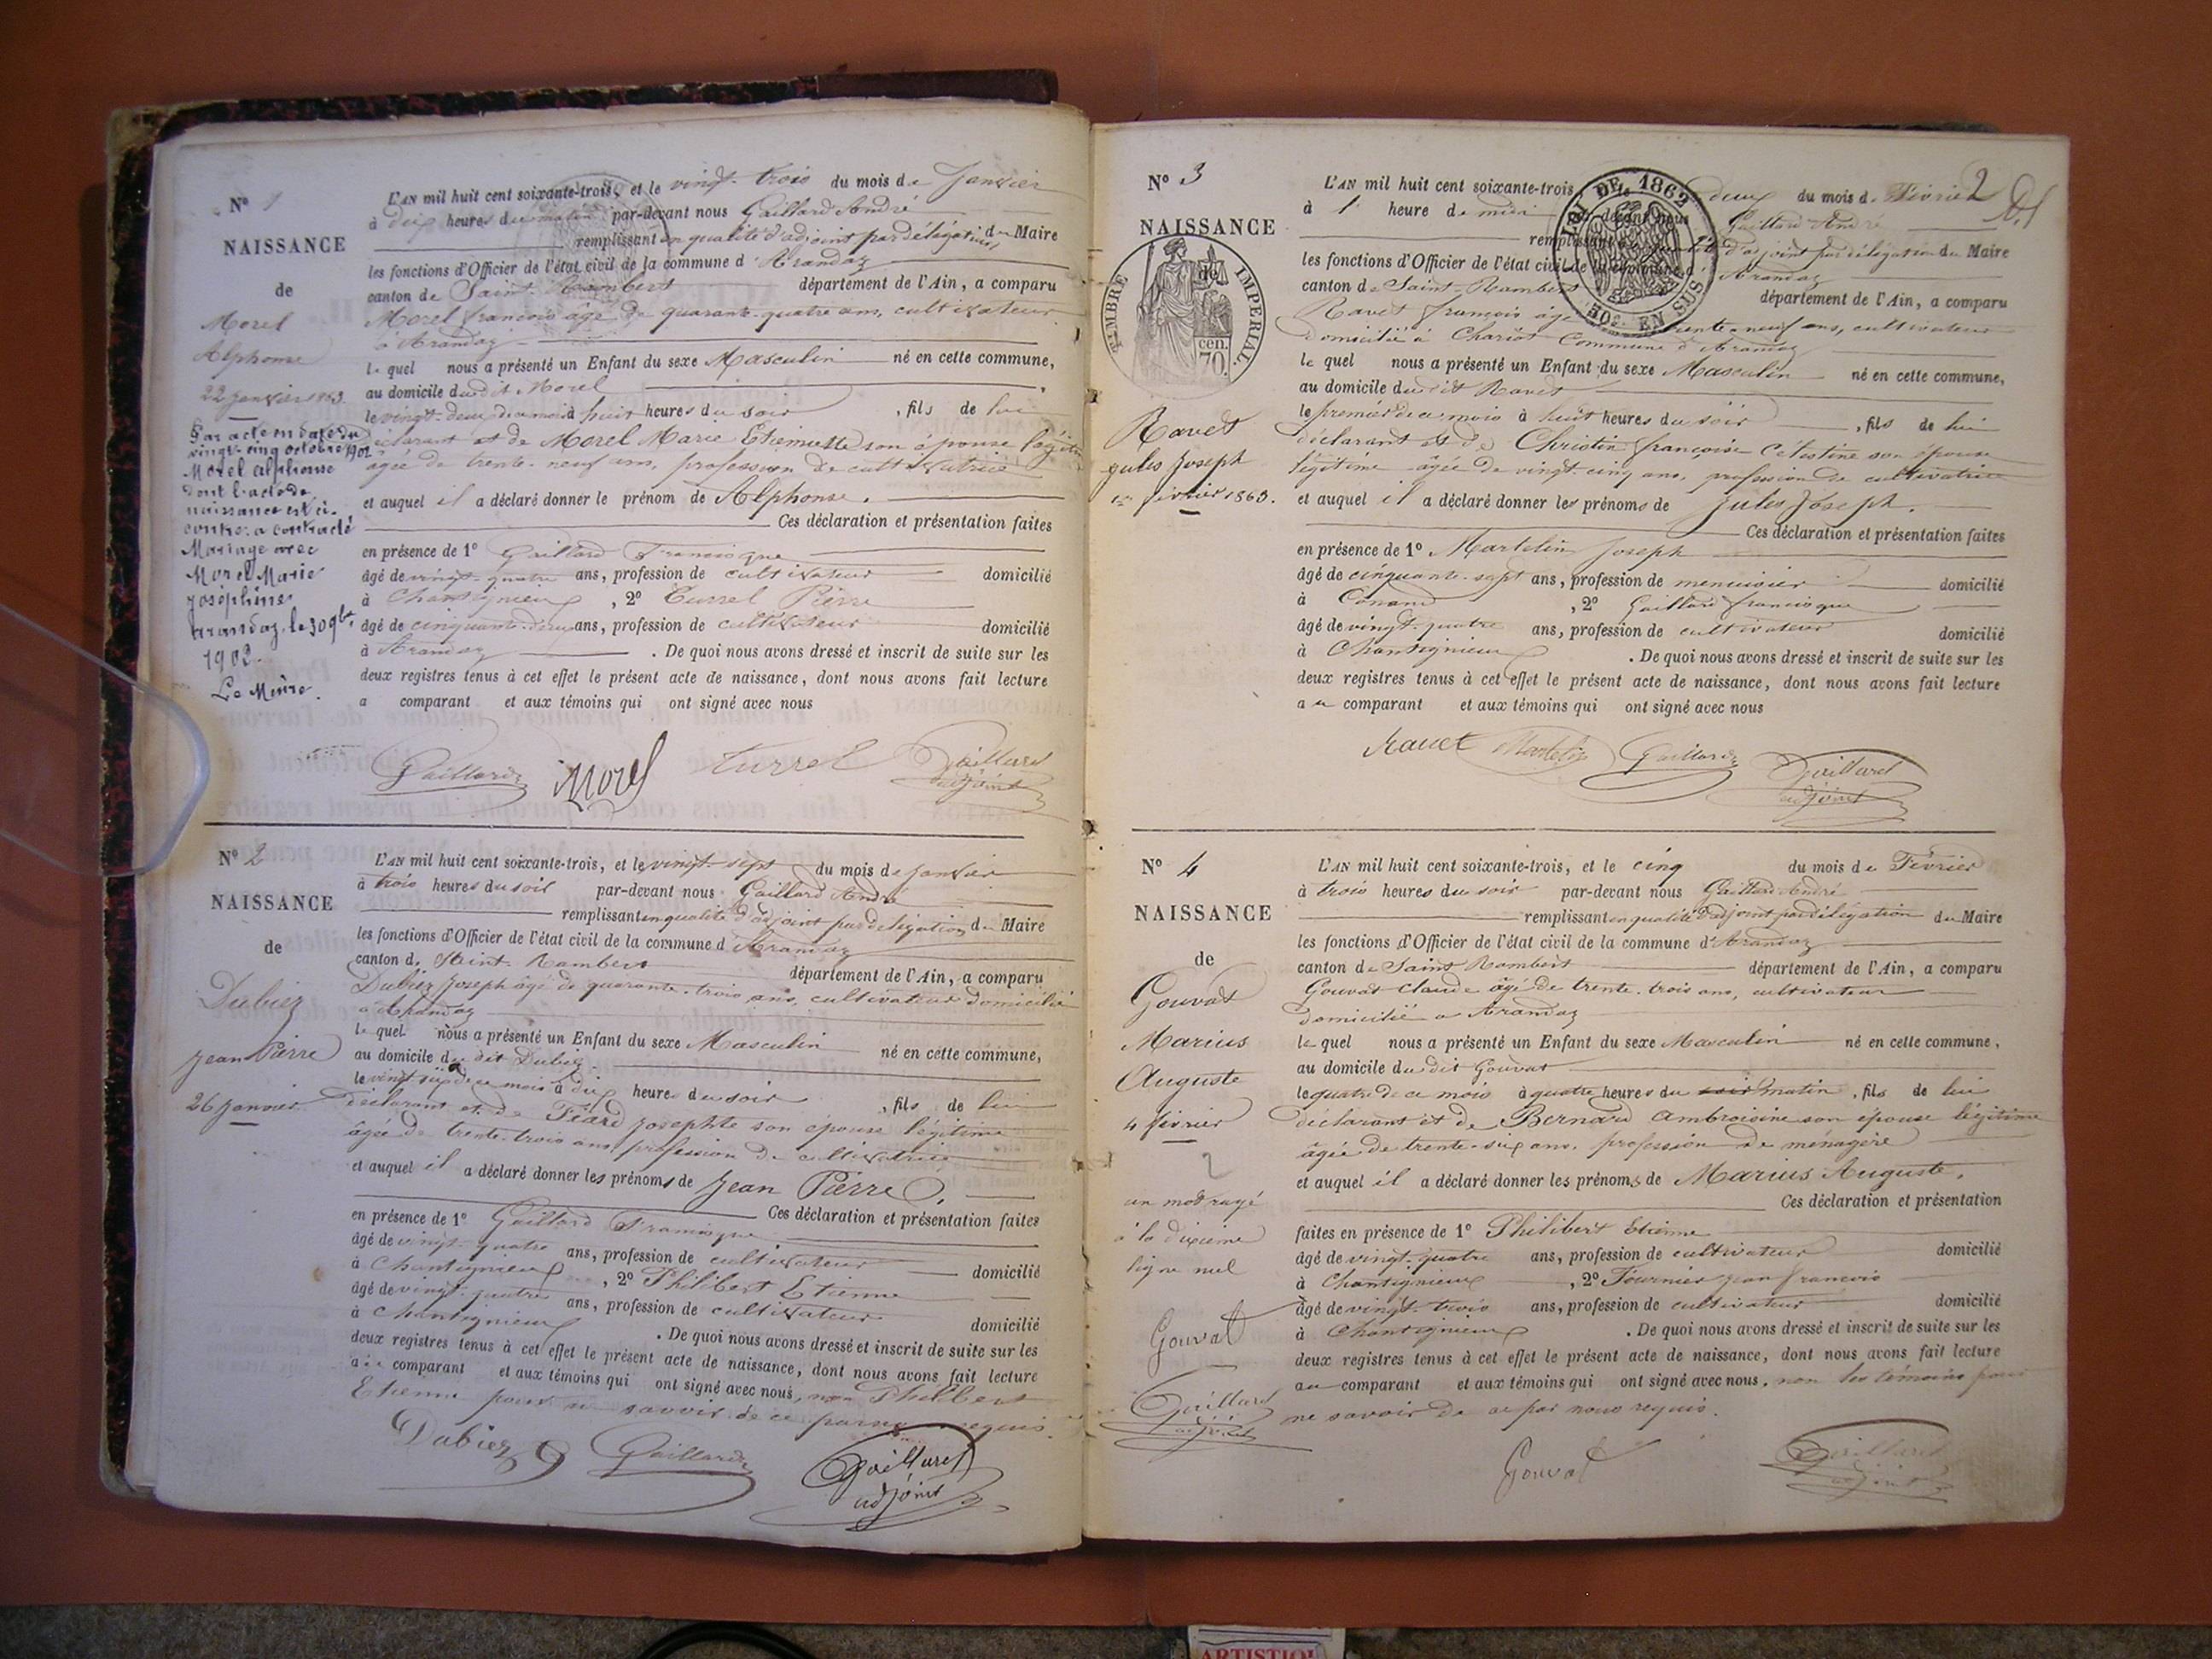 N° 1
NAISSANCE
de
Morel
Alphonse
22 janvier 1863
Par acte en date du
vingt-cinq octobre 1902
Morel alphonse
dont l'acte de
naissance est ci-
contre a contracté
Mariage avec
Morel Marie
joséphine
arandaz, le 30 9bre
1902.
Le Maire.
L'AN mil huit cent soixante-trois, et le vingt-trois du mois de Janvier
à dix heures du matin par-devant nous Gaillard André
remplissant en qualité d'adjoint par délégation du Maire
les fonctions d'Officier de l'état civil de la commune d'Arandaz
canton de Saint-Rambert département de l'Ain, a comparu
Morel francois âgé de quarante-quatre ans, cultivateur
à Arandaz
lequel nous a présenté un Enfant du sexe Masculin né en cette commune,
au domicile dudit Morel
le vingt-deux de ce mois à huit heures du soir, fils de lui
déclarant et de Morel Marie Etiennette son épouse légitime
âgée de trente-neuf ans, profession de cultivatrice
et auquel il a déclaré donner le prénom de Alphonse.
Ces déclaration et présentation faites
en présence de 1° Gaillard Francisque
âgé de vingt-quatre ans, profession de cultivateur domicilié
à Chantignieux, 2° Turrel Pierre
âgé de cinquante-deux ans, profession de cultivateur domicilié
à Arandaz. De quoi nous avons dressé et inscrit de suite sur les
deux registres tenus à cet effet le présent acte de naissance, dont nous avons fait lecture
a comparant et aux témoins qui ont signé avec nous
Gaillard Morel turrel Gaillard
adjoint
N° 2
NAISSANCE
de
Dubiez
jean Pierre
26 janvier
L'AN mil huit cent soixante-trois, et le vingt-sept du mois de janvier
à trois heures du soir par-devant nous Gaillard André
remplissant en qualité d'adjoint par délégation du Maire
les fonctions d'Officier de l'état civil de la commune d'Arandaz
canton de Saint-Rambert département de l'Ain, a comparu
Dubiez Joseph âgé de quarante-trois ans, cultivateur domicilié
à Arandaz
lequel nous a présenté un Enfant du sexe Masculin né en cette commune,
au domicile du dit Dubiez
le vingt six de ce mois à dix heures du soir, fils de lui
déclarant et de Féard josephte son épouse légitime
âgée de trente-trois ans, profession de cultivatrice
et auquel il a déclaré donner les prénoms de Jean Pierre.
Ces déclaration et présentation faites
en présence de 1° Gaillard Francisque
âgé de vingt-quatre ans, profession de cultivateur domicilié
à Chantignieux, 2° Philibert Etienne
âgé de vingt-quatre ans, profession de cultivateur domicilié
à Chantignieux. De quoi nous avons dressé et inscrit de suite sur les
deux registres tenus à cet effet le présent acte de naissance, dont nous avons fait lecture
au comparant et aux témoins qui ont signé avec nous, non Philibert
Etienne pour ne savoir de ce par nous requis.
Dubiez Gaillard Gaillard
adjoint
2
N° 3
NAISSANCE
de
TIMBRE IMPERIAL
70 cen.
Ravet
jules Joseph
1er février 1863.
LOI DE 1862
EN SUS
L'AN mil huit cent soixante-trois deux du mois de Février
à 1 heure de midi par-devant nous Gaillard André
remplissant en qualité d'adjoint par délégation du Maire
les fonctions d'Officier de l'état civil de la commune d'Arandaz
canton de Saint-Rambert département de l'Ain, a comparu
Ravet françois âgé trente-neuf ans, cultivateur
domicilié à Chariot Commune d'Arandaz
lequel nous a présenté un Enfant du sexe Masculin né en cette commune,
au domicile dudit Ravet
le premier de ce mois à huit heures du soir, fils de lui
déclarant et de Christin françoise Célestine son épouse
légitime âgée de vingt-cinq ans, profession de cultivatrice
et auquel il a déclaré donner les prénoms de jules Joseph.
Ces déclaration et présentation faites
en présence de 1° Martelin Joseph
âgé de cinquante-sept ans, profession de menuisier domicilié
à Conand, 2° Gaillard francisque
âgé de vingt-quatre ans, profession de cultivateur domicilié
à Chantignieux. De quoi nous avons dressé et inscrit de suite sur les
deux registres tenus à cet effet le présent acte de naissance, dont nous avons fait lecture
au comparant et aux témoins qui ont signé avec nous
Ravet Martelin Gaillard Gaillard
adjoint
N° 4
NAISSANCE
de
Gouvat
Marius
Auguste
4 février
2
un mot rayé
à la dixième
ligne nul
Gouvat
Gaillard
adjoint
L'AN mil huit cent soixante-trois, et le cinq du mois de Février
à trois heures du soir par-devant nous Gaillard André
remplissant en qualité d'adjoint par délégation du Maire
les fonctions d'Officier de l'état civil de la commune d'Arandaz
canton de Saint Rambert département de l'Ain, a comparu
Gouvat Claude âgé de trente-trois ans, cultivateur
domicilié à Arandaz
lequel nous a présenté un Enfant du sexe Masculin né en cette commune,
au domicile dudit Gouvat
le quatre de ce mois à quatre heures du soir matin, fils de lui
déclarant et de Bernard Ambroisine son épouse légitime
âgée de trente-six ans, profession de menagère
et auquel il a déclaré donner les prénoms de Marius Auguste.
Ces déclaration et présentation
faites en présence de 1° Philibert Etienne
âgé de vingt-quatre ans, profession de cultivateur domicilié
à Chantignieux, 2° Fournier jean francois
âgé de vingt-trois ans, profession de cultivateur domicilié
à Chantignieux. De quoi nous avons dressé et inscrit de suite sur les
deux registres tenus à cet effet le présent acte de naissance, dont nous avons fait lecture
au comparant et aux témoins qui ont signé avec nous, non les témoins pour
ne savoir de ce par nous requis.
Gouvat Gaillard
adjoint